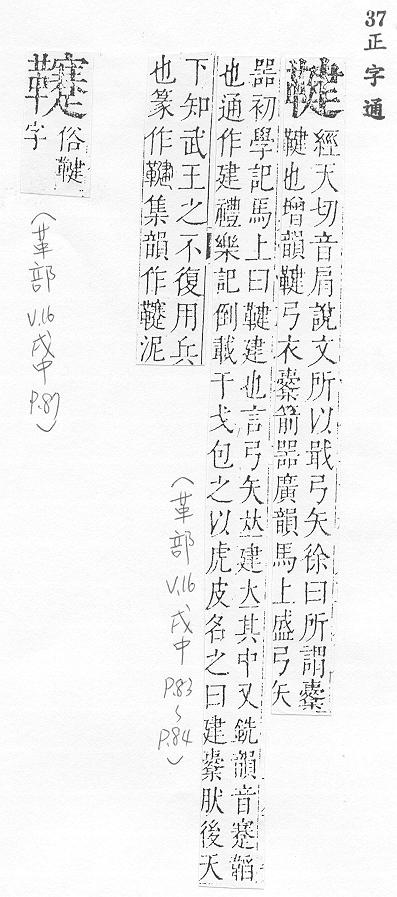 37 正字通
鞬
經天切音肩說文所以戢弓矢徐曰所謂櫜
鞬也增韻鞬弓衣櫜箭器廣韻馬上盛弓矢
器初學記馬上曰鞬建也言弓矢𠀤建大其中又銑韻音蹇韜
也通作建禮樂記倒載干戈包之以虎皮名之曰建櫜肰後天
下知武王之不復用兵
也篆作集韻作泥
(革部 V.16 戌中 P.83~P.84)
俗鞬
字
(革部 V.16 戌中 P.87)